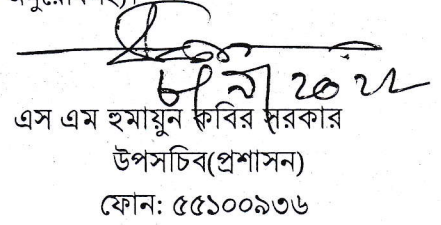 এস এম হুমায়ুন কবির সরকার
উপসচিব(প্রশাসন)
ফোন: ৫৫১০০৯৩৬